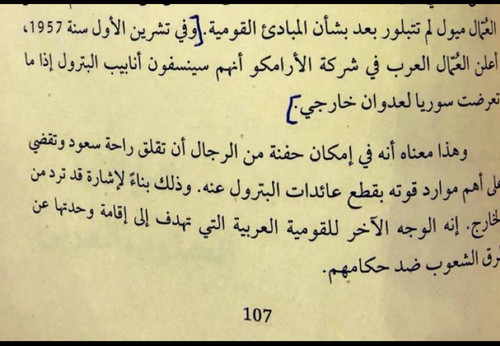 العُمّال ميول لم تتبلور بعد بشأن المبادئ القومية. [وفي تشرين الأول سنة 1957،
أعلن العُمّال العرب في شركة الأرامكو أنهم سينسفون أنابيب البترول إذا ما
تعرضت سوريا لعدوان خارجي.]
وهذا معناه أنه في إمكان حفنة من الرجال أن تقلق راحة سعود وتقضي
على أهم موارد قوته بقطع عائدات البترول عنه. وذلك بناءً لإشارة قد ترد من
الخارج. إنه الوجه الآخر للقومية العربية التي تهدف إلى إقامة وحدتها عن
طرق الشعوب ضد حكامهم.
107